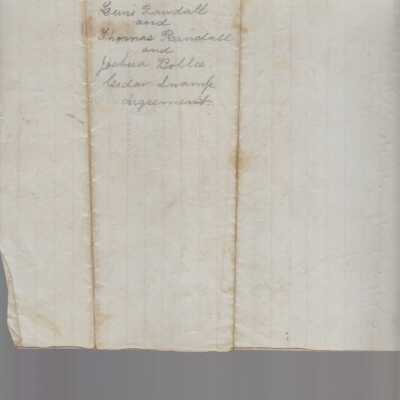 Randall
and
Thomas Randall
and
Joshua Bolles
Cedar Swamp
Agreement.